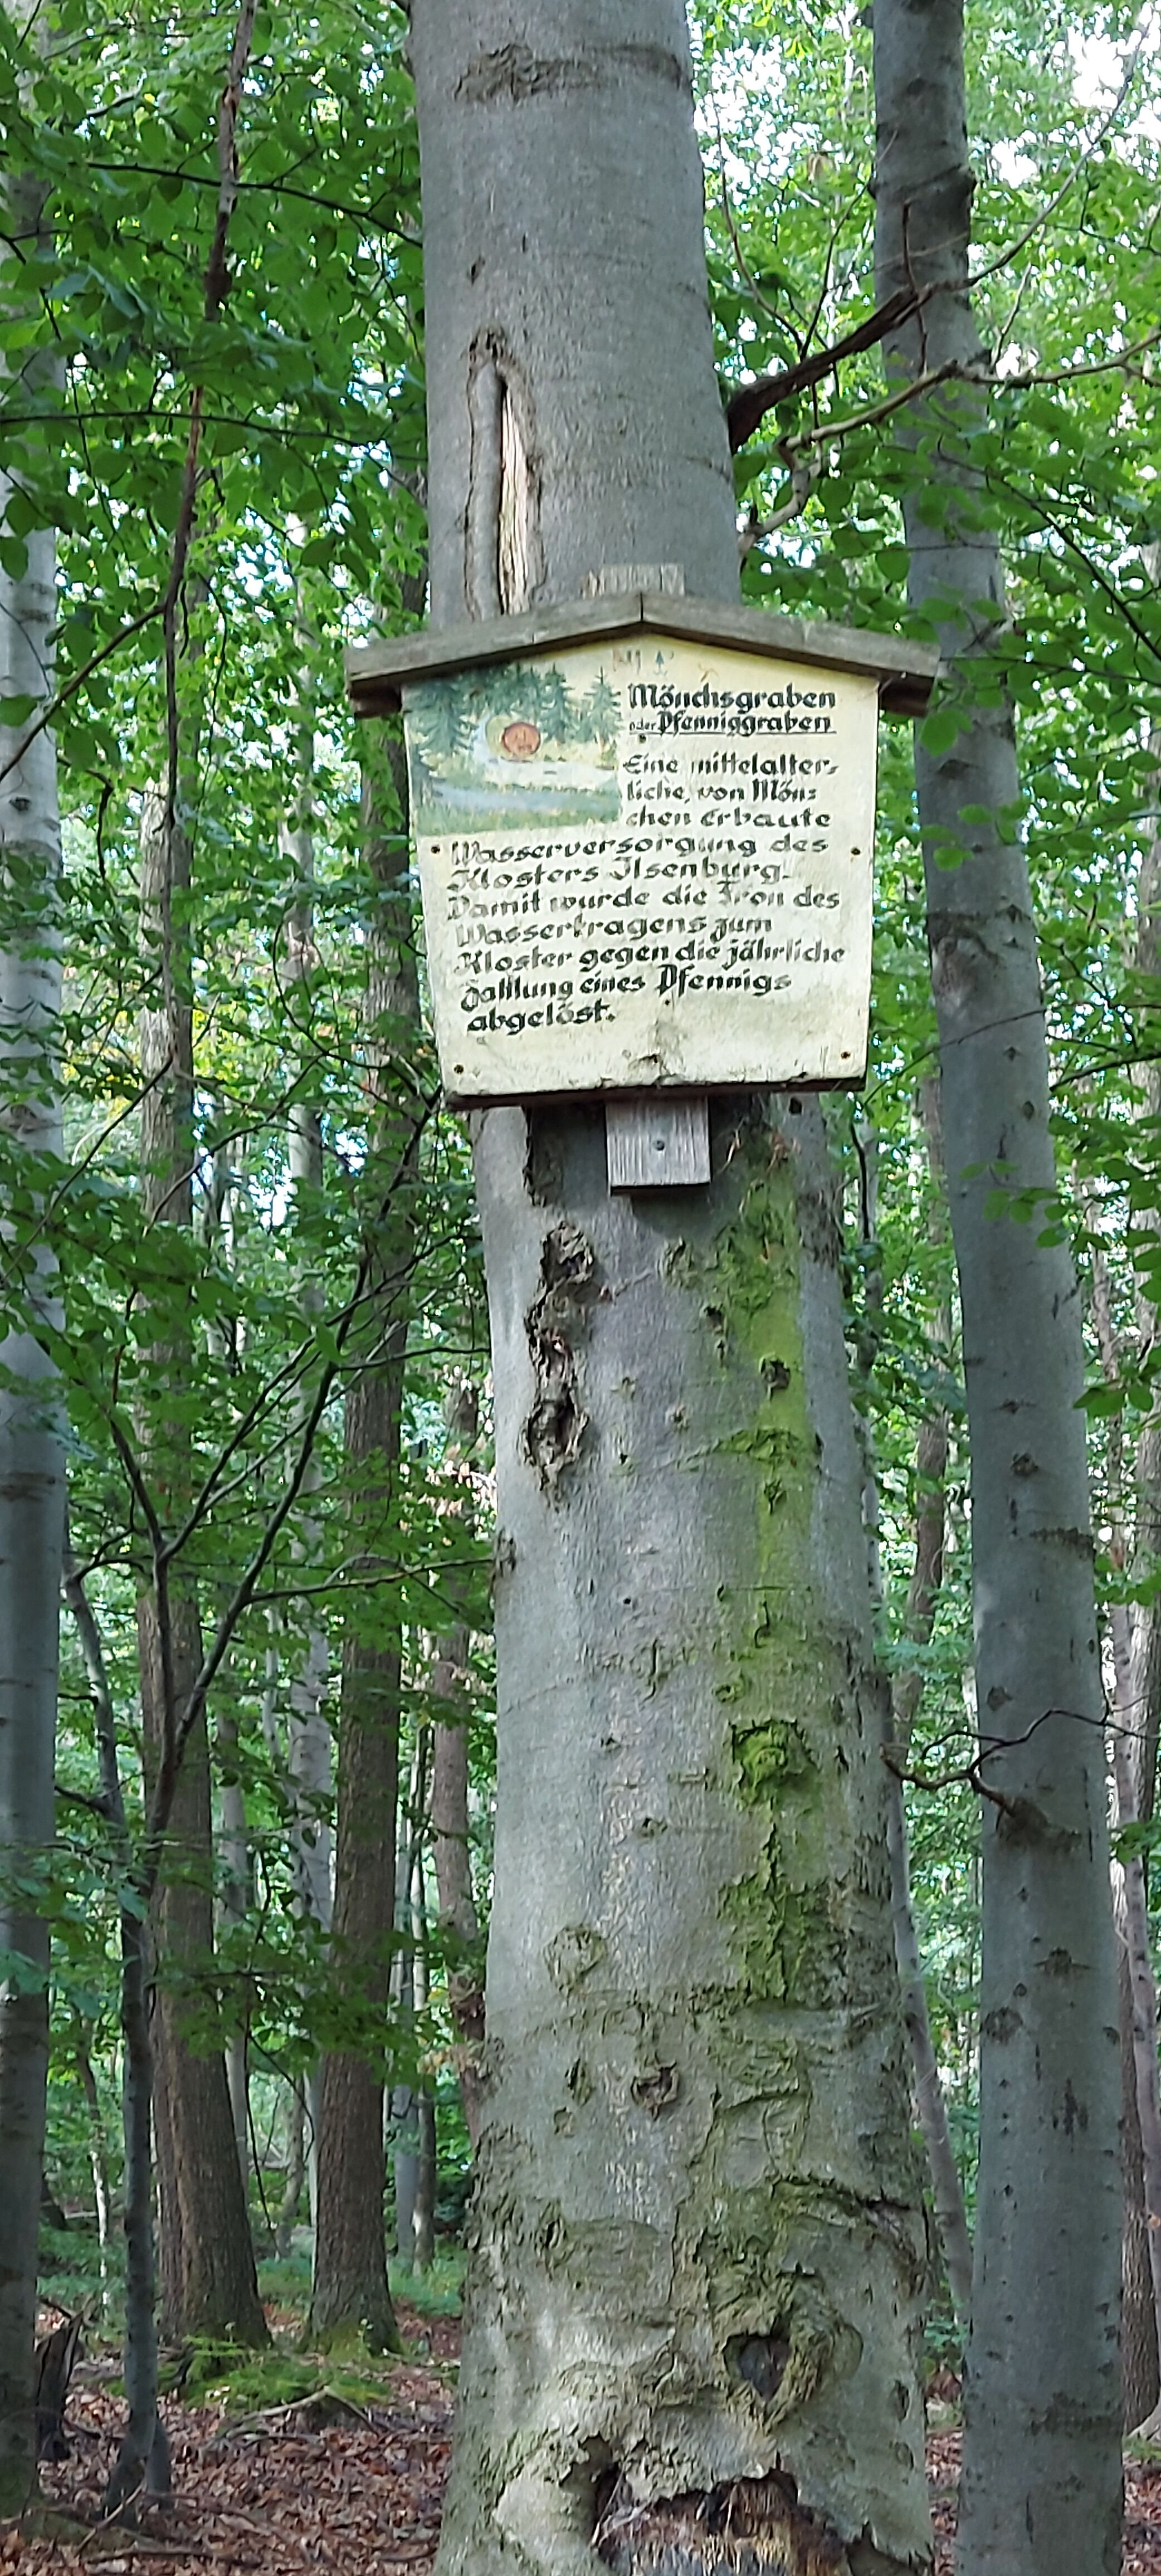 Mönchsgraben
oder Pfenniggraben
Eine mittelalter-
liche, von Mön-
chen erbaute
Wasserversorgung des
Klosters Ilsenburg.
Damit wurde die Fron des
Wassertragens zum
Kloster gegen die jährliche
Zahlung eines Pfennigs
abgelöst.